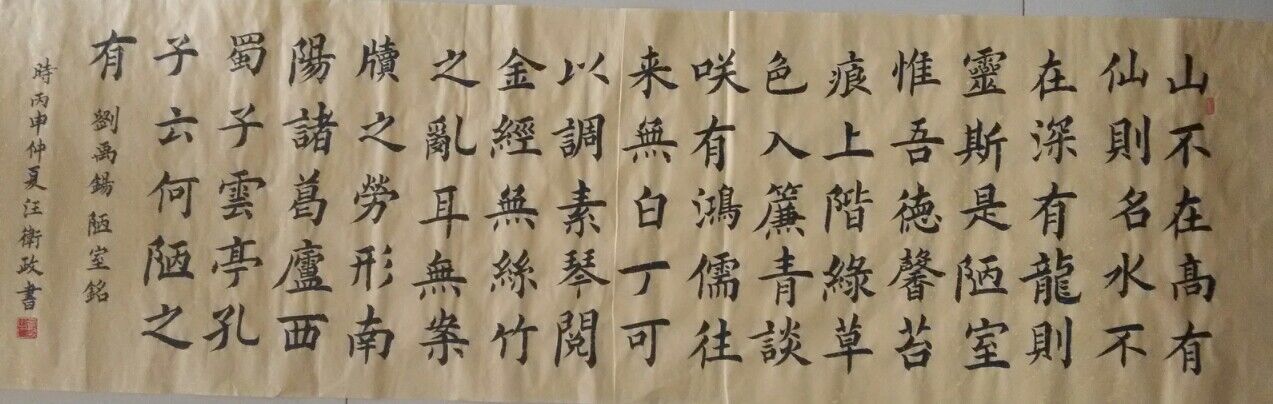 山不在高有
仙則名水不
在深有龍則
靈斯是陋室
惟吾德馨苔
痕上階綠草
色入簾青談
咲有鴻儒往
来無白丁可
以調素琴閱
金經無絲竹
之亂耳無案
牘之勞形南
陽諸葛廬西
蜀子雲亭孔
子云何陋之
有 劉禹錫陋室銘
時丙申仲夏汪衛政書